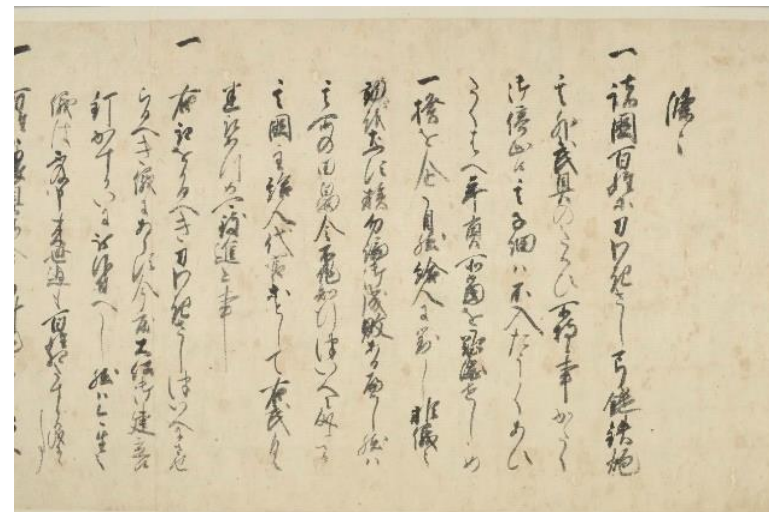 條々
一 諸國百姓等刀わきさし弓鑓鉄炮
其外武具のたくひ所持候事かたく
御停止候其子細ハ不入たうくあひ
たくはへ年貢所當を難渋せしめ
一揆を企自然給人に對し非儀之
族勿論御成敗あるへし然ハ
其所の田畠令不作知行ついへ
其國主給人代官等として右武具
悉取
一 右取をかるへき刀わきさしついへにさせ
らるへき儀にあらす今度大仏御建立
釘かすかいに被仰付へし然ハ今生之
儀ハ不及申来世迄も百姓
一 百姓